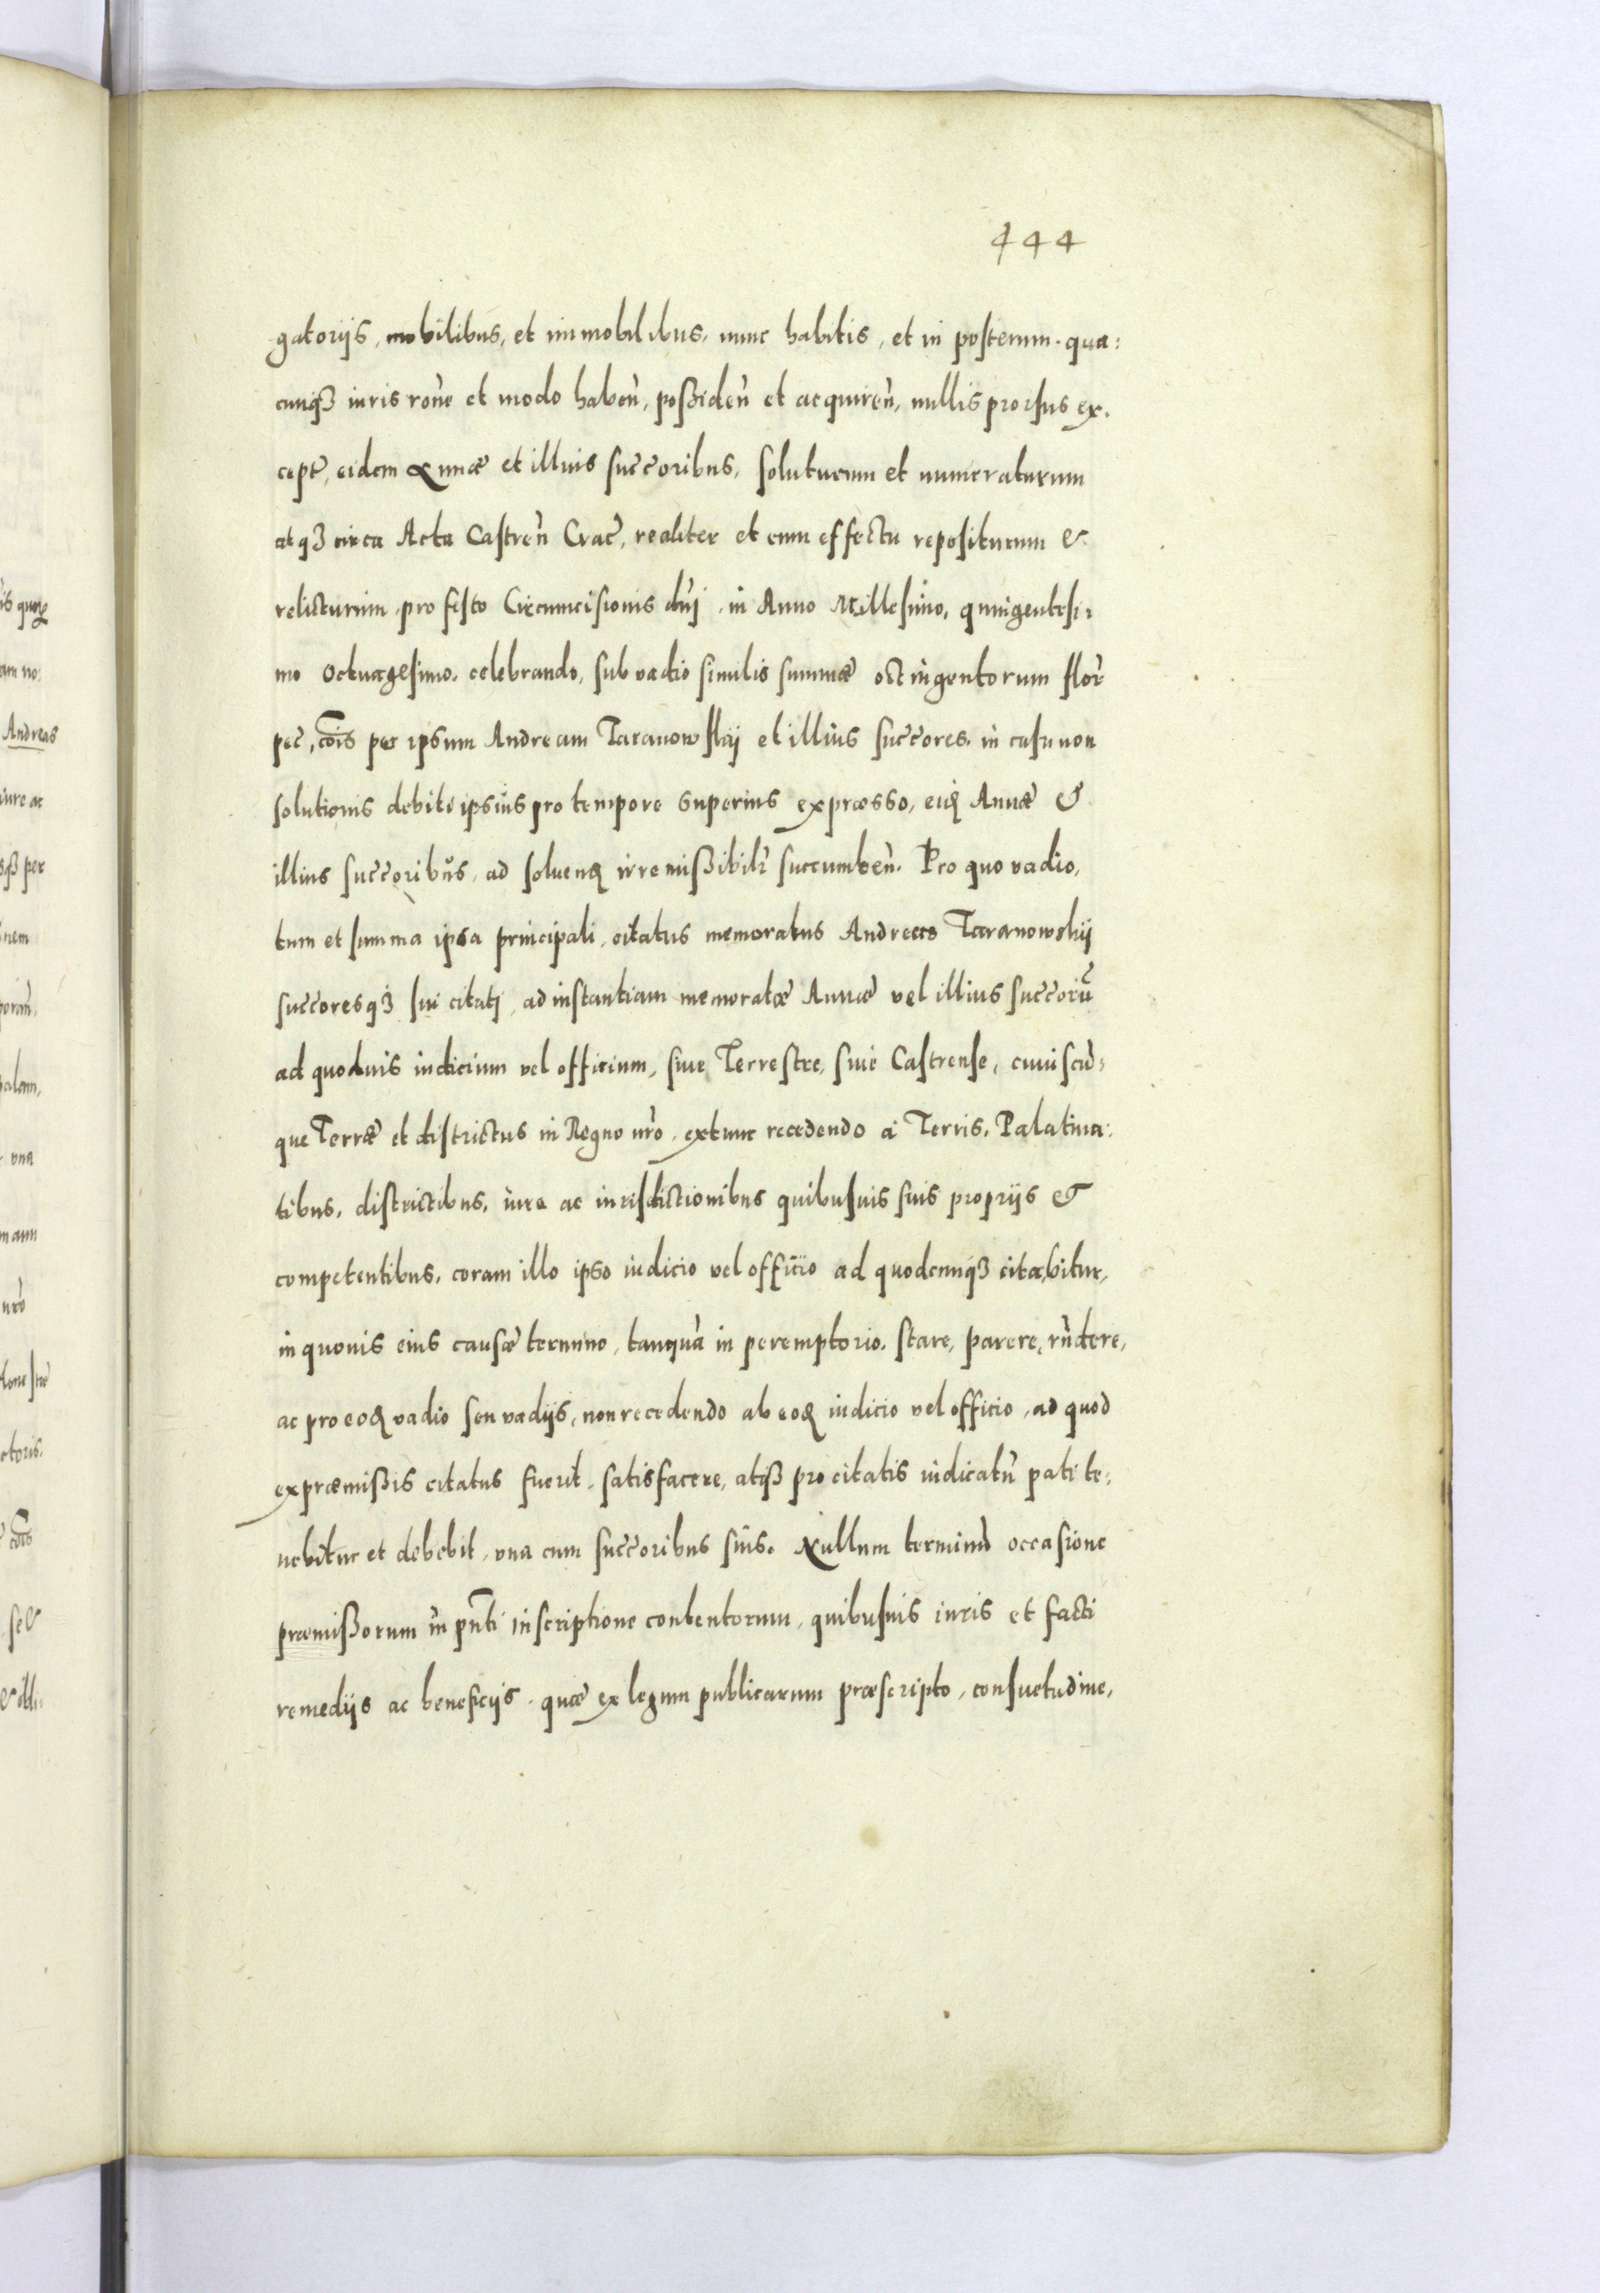 444
gatorijs, mobilibus, et immobilibus, nunc habitis, et in posterum. qua:
cunqȝ iuris rone et modo haben̄, possiden̄ et acquiren̄, nullis prorsus ex.
cept, eidem Annæ et illius succoribus, soluturum et numeraturum
atqȝ circa Acta Castren̄ Crac̄, realiter et cum effectu repositurum &
relicturum, pro festo Circumcisionis dn̄j, in Anno Millesimo, quingentesi:
mo Octuagesimo. celebrando, sub vadio similis summæ octingentorum flor̄
pec̄, cōis per ipsum Andream Taranowskij et illius succores. in casu non
solutionis debiti ipsius pro tempore superius expræsso, eidꝫ Annæ &
illius succoribus, ad soluendꝫ irremissibilr̄ succumben̄. Pro quo vadio,
tum et summa ipsa principali, citatus memoratus Andreas Taranowskij
succoresqȝ sui citatj, ad instantiam memoratæ Annæ vel illius succorū
ad quoduis iudicium vel officium, siue Terrestre, siue Castrense, cuiuscū:
que Terræ et districtus in Regno nr̄o, extunc recedendo à Terris, Palatina:
tibus, districtibus, iure ac iurisdictionibus quibusuis suis proprijs &
competentibus, coram illo ipso iudicio vel officio ad quodcunqȝ citabitur,
in quouis eius causæ termino, tanquā in peremptorio. stare, parere, rn̄dere,
ac pro eodꝫ vadio seu vadijs, non recedendo ab eodꝫ iudicio vel officio, ad quod
ex præmissis citatus fuerit, satisfacere, atqȝ pro citatis iudicatū pati te:
nebitur et debebit, vna cum succoribus suis. Nullum terminū occasione
præmissorum in pn̄ti inscriptione contentorum, quibusuis iuris et facti
remedijs ac beneficijs, quæ ex legum publicarum præscripto, consuetudine,
Andreas